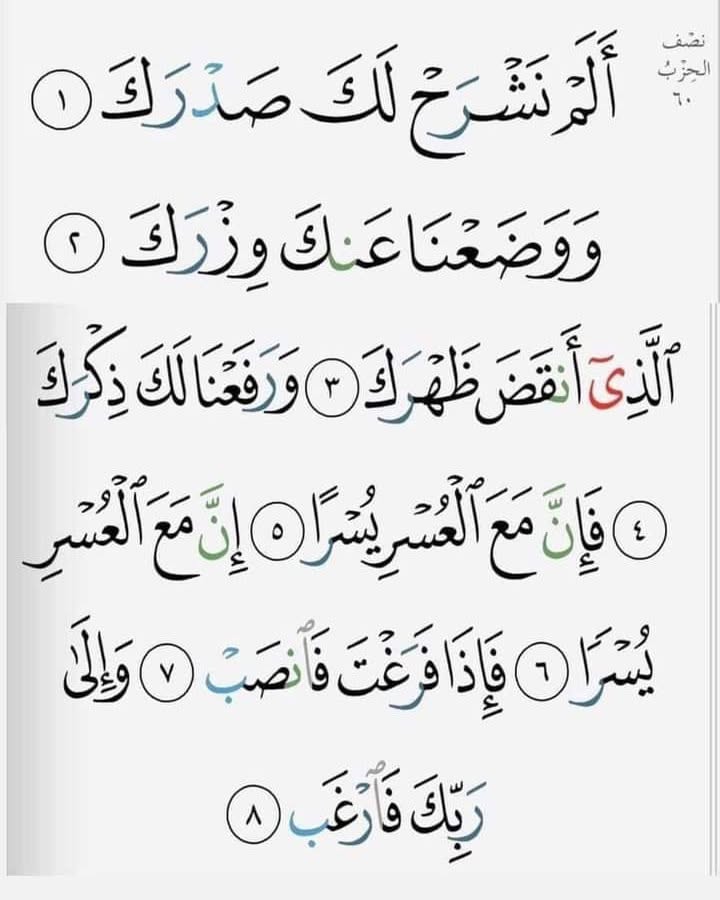 نصف
الحزب
٦٠
أَلَمْ نَشْرَحْ لَكَ صَدْرَكَ ١
وَوَضَعْنَا عَنكَ وِزْرَكَ ٢
ٱلَّذِىٓ أَنقَضَ ظَهْرَكَ ٣ وَرَفَعْنَا لَكَ ذِكْرَكَ
٤ فَإِنَّ مَعَ ٱلْعُسْرِ يُسْرًا ٥ إِنَّ مَعَ ٱلْعُسْرِ
يُسْرًا ٦ فَإِذَا فَرَغْتَ فَٱنصَبْ ٧ وَإِلَىٰ
رَبِّكَ فَٱرْغَب ٨